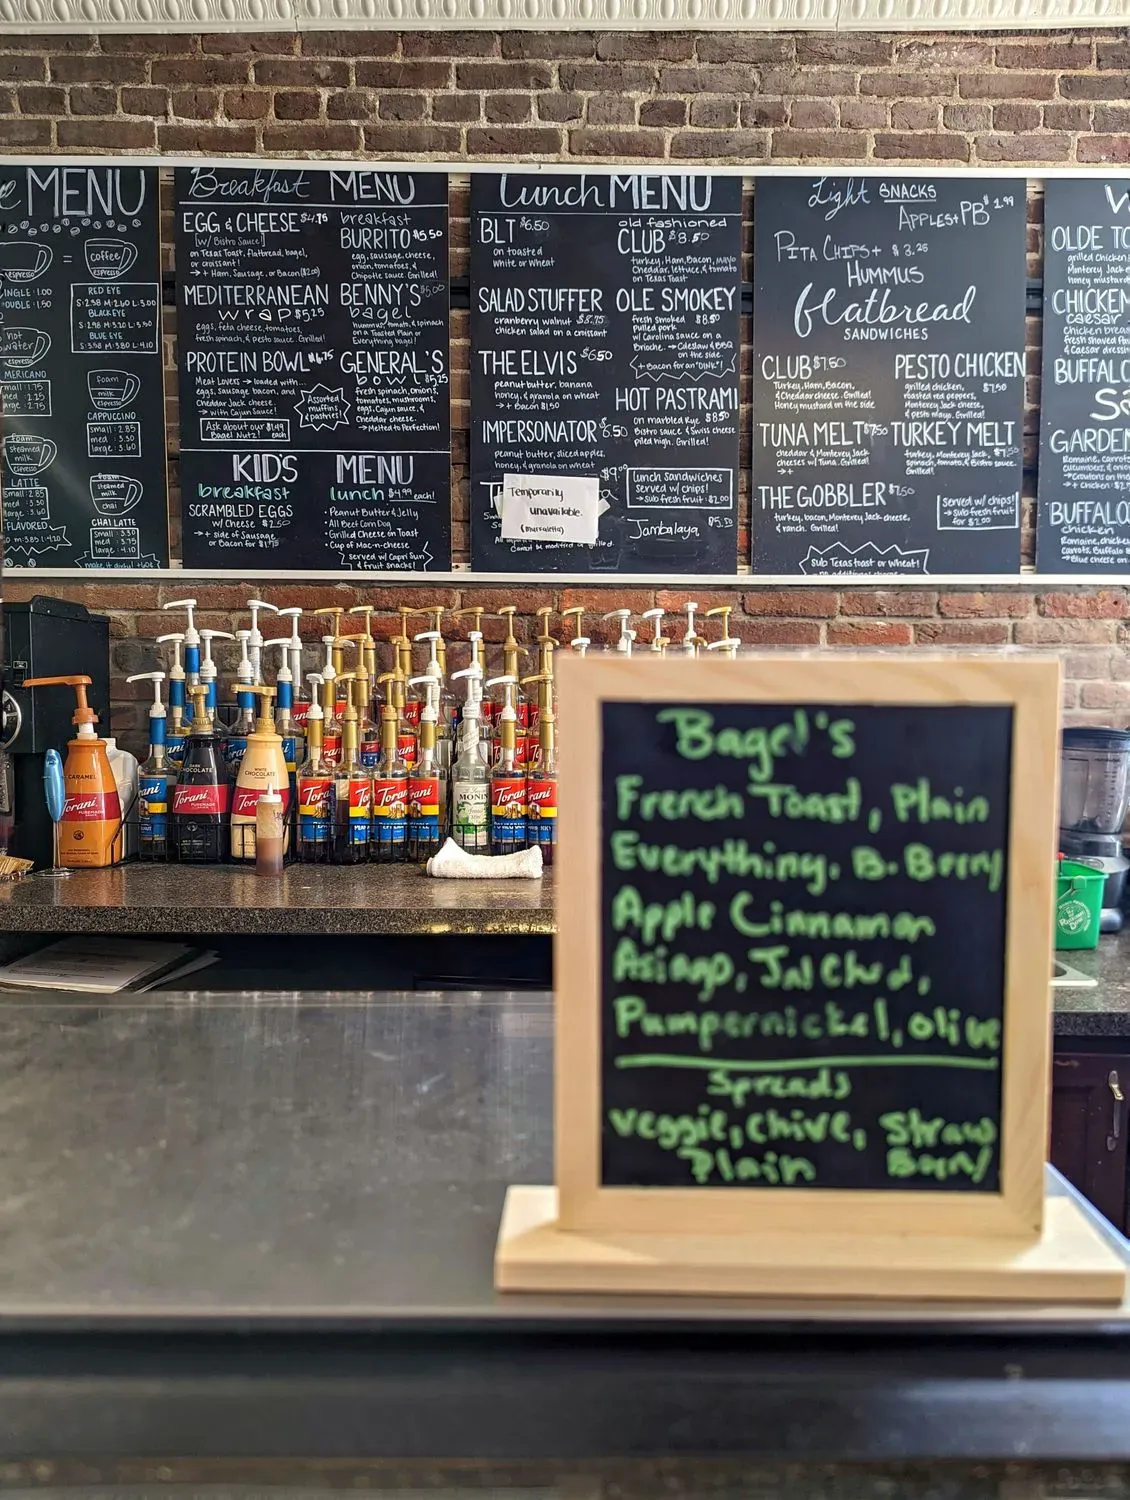 MENU
espresso
=
coffee
espresso
SINGLE 1.00
DOUBLE 1.50
RED EYE
S:2.98 M:2.60 L:3.00
BLACK EYE
S:2.98 M:3.20 L:3.50
BLUE EYE
S:3.58 M:3.80 L:4.10
hot
water
espresso
small: 1.75
med: 2.25
large: 2.75
foam
milk
espresso
CAPPUCCINO
small: 2.85
med: 3.30
large: 3.60
foam
steamed
milk
espresso
LATTE
small: 2.85
med: 3.30
large: 3.60
FLAVORED
foam
steamed
milk
chai
CHAI LATTE
small: 3.30
med: 3.50
large: 4.10
Breakfast MENU
EGG & CHEESE $4.75
[w/ Bistro Sauce]
on Texas Toast, flatbread, bagel,
or croissant!
→ + Ham, Sausage, or Bacon ($2.00)
MEDITERRANEAN
wrap $5.25
eggs, feta cheese, tomatoes,
fresh spinach, & pesto sauce. Grilled!
PROTEIN BOWL $6.75
Meat Lovers → loaded with...
eggs, sausage, bacon, and
Cheddar Jack cheese.
→ with Cajun Sauce!
Ask about our $1.49
Bagel Nutz! each
breakfast
BURRITO $5.50
egg, sausage, cheese,
onion, tomatoes, &
Chipotle sauce. Grilled!
BENNY'S $5.00
bagel
hummus, tomato, & spinach
on a Toasted Plain or
Everything bagel!
GENERAL'S
bowl $5.25
fresh spinach, onions,
tomatoes, mushrooms,
eggs, Cajun sauce, &
Cheddar cheese.
→ Melted to Perfection!
Assorted
muffins
& pastries!
KID'S MENU
breakfast
SCRAMBLED EGGS
w/ Cheese $2.50
→ + side of Sausage
or Bacon for $1.75
lunch $4.99 each!
• Peanut Butter & Jelly
• All Beef Corn Dog
• Grilled Cheese on Toast
• Cup of Mac-n-cheese
served w/ Capri Sun
& fruit snacks!
Lunch MENU
BLT $6.50
on toasted
White or Wheat
SALAD STUFFER
cranberry walnut $8.75
chicken salad on a croissant
THE ELVIS $6.50
peanut butter, banana
honey, & granola on wheat
→ + Bacon $1.50
IMPERSONATOR $6.50
peanut butter, sliced apples,
honey, & granola on wheat
Temporarily
unavailable.
(muffaletta)
$9.00
old fashioned
CLUB $8.50
turkey, Ham, Bacon, mayo
Cheddar, lettuce, & tomato
on Texas Toast
OLE SMOKEY
fresh smoked $8.50
pulled pork
w/ Carolina sauce on a
Brioche. → Coleslaw & BBQ
on the side.
+ Bacon for an "OINK"!
HOT PASTRAMI
on marbled Rye $8.50
Bistro sauce & Swiss cheese
piled high. Grilled!
lunch sandwiches
served w/ chips!
→ sub fresh fruit $2.00
Jambalaya $5.50
Light SNACKS
APPLES + PB $1.99
PITA CHIPS + $3.25
HUMMUS
flatbread
SANDWICHES
CLUB $7.50
Turkey, Ham, Bacon,
& Cheddar cheese. Grilled!
Honey mustard on the side
TUNA MELT $7.50
cheddar & Monterey Jack
cheeses w/ Tuna. Grilled!
THE GOBBLER $7.50
turkey, bacon, Monterey Jack cheese,
& ranch. Grilled!
PESTO CHICKEN
grilled chicken, $7.50
roasted red peppers,
Monterey Jack cheese,
& pesto mayo. Grilled!
TURKEY MELT
turkey, Monterey Jack, $7.50
spinach, tomato, & Bistro sauce.
Served w/ chips!
→ sub fresh fruit
for $2.00
Sub Texas toast or Wheat!
OLDE TO
grilled Chicken
Monterey Jack c
honey mustard
CHICKEN
caesar
Chicken breas
fresh shaved Pa
& Caesar dressin
BUFFALO
GARDEN
Romaine, carrots
cucumbers, & onio
→ Croutons on the
+ Chicken
BUFFALO
chicken
Romaine, chicken
carrots, Buffalo
→ Blue cheese on
CARAMEL
Torani
DARK
CHOCOLATE
Torani
WHITE
CHOCOLATE
Torani
Torani
Torani
Torani
MONIN
Torani
Torani
Bagel's
French Toast, Plain
Everything, B. Berry
Apple Cinnamon
Asiago, Jal Ched,
Pumpernickel, olive
Spreads
veggie, chive, Straw
Plain Berry